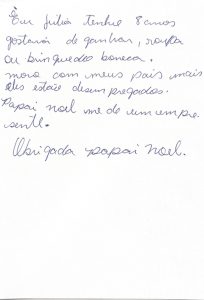 Eu Julia tenho 8 anos
gostaria de ganhar, roupa
ou brinquedos boneca.
moro com meus pais mais
eles estão desempregados.
Papai noel me de um em pre
sente.
Obrigada papai noel.